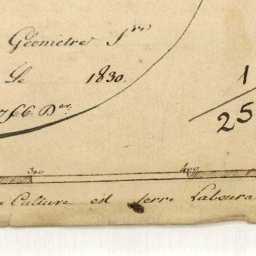 Géometre Jre
Le 1830.
766 Der
1
25
300 400
Culture est terre Laboura